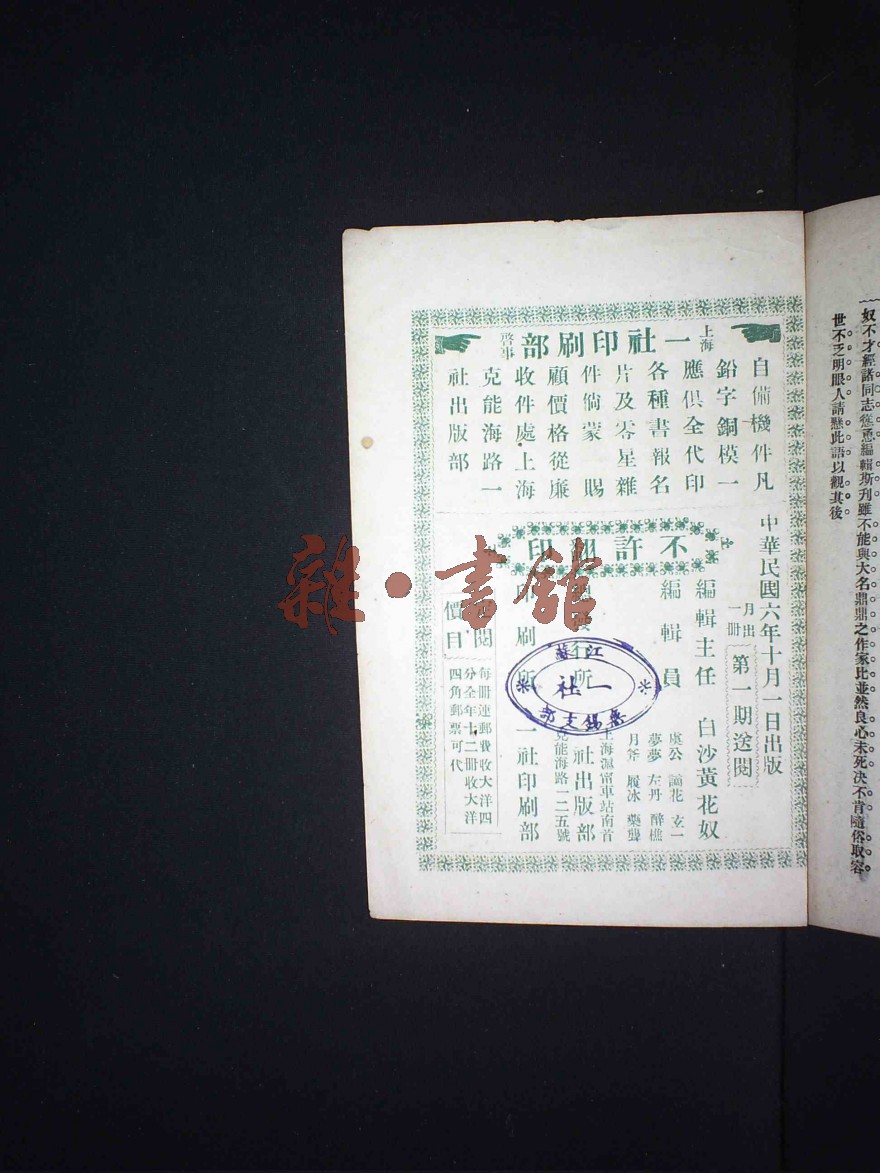 奴不才經諸同志慫恿編輯斯刋雖不能與大名鼎鼎之作家比並然良心未死決不肯隨俗取容
世不乏明眼人請懸此語以觀其後
上海一社印刷部啓事
自備機件凡
鉛字銅模一
應俱全代印
各種書報名
片及零星雜
件倘蒙 賜
顧價格從廉
收件處上海
克能海路一
社出版部
中華民國六年十月一日出版
月出一冊
第一期送閱
不許翻印
編輯主任 白沙黃花奴
編輯員
虞公 諭花 玄一
夢夢 左丹 醉樵
月斧 履冰 藥聾
發行所
上海滬甯車站南首
一社出版部
克能海路一二五號
印刷所 一社印刷部
閱
價目
每冊連郵費收大洋四
分全年十二冊收大洋
四角郵票可代
江蘇
一社
無錫支部
雜·書館